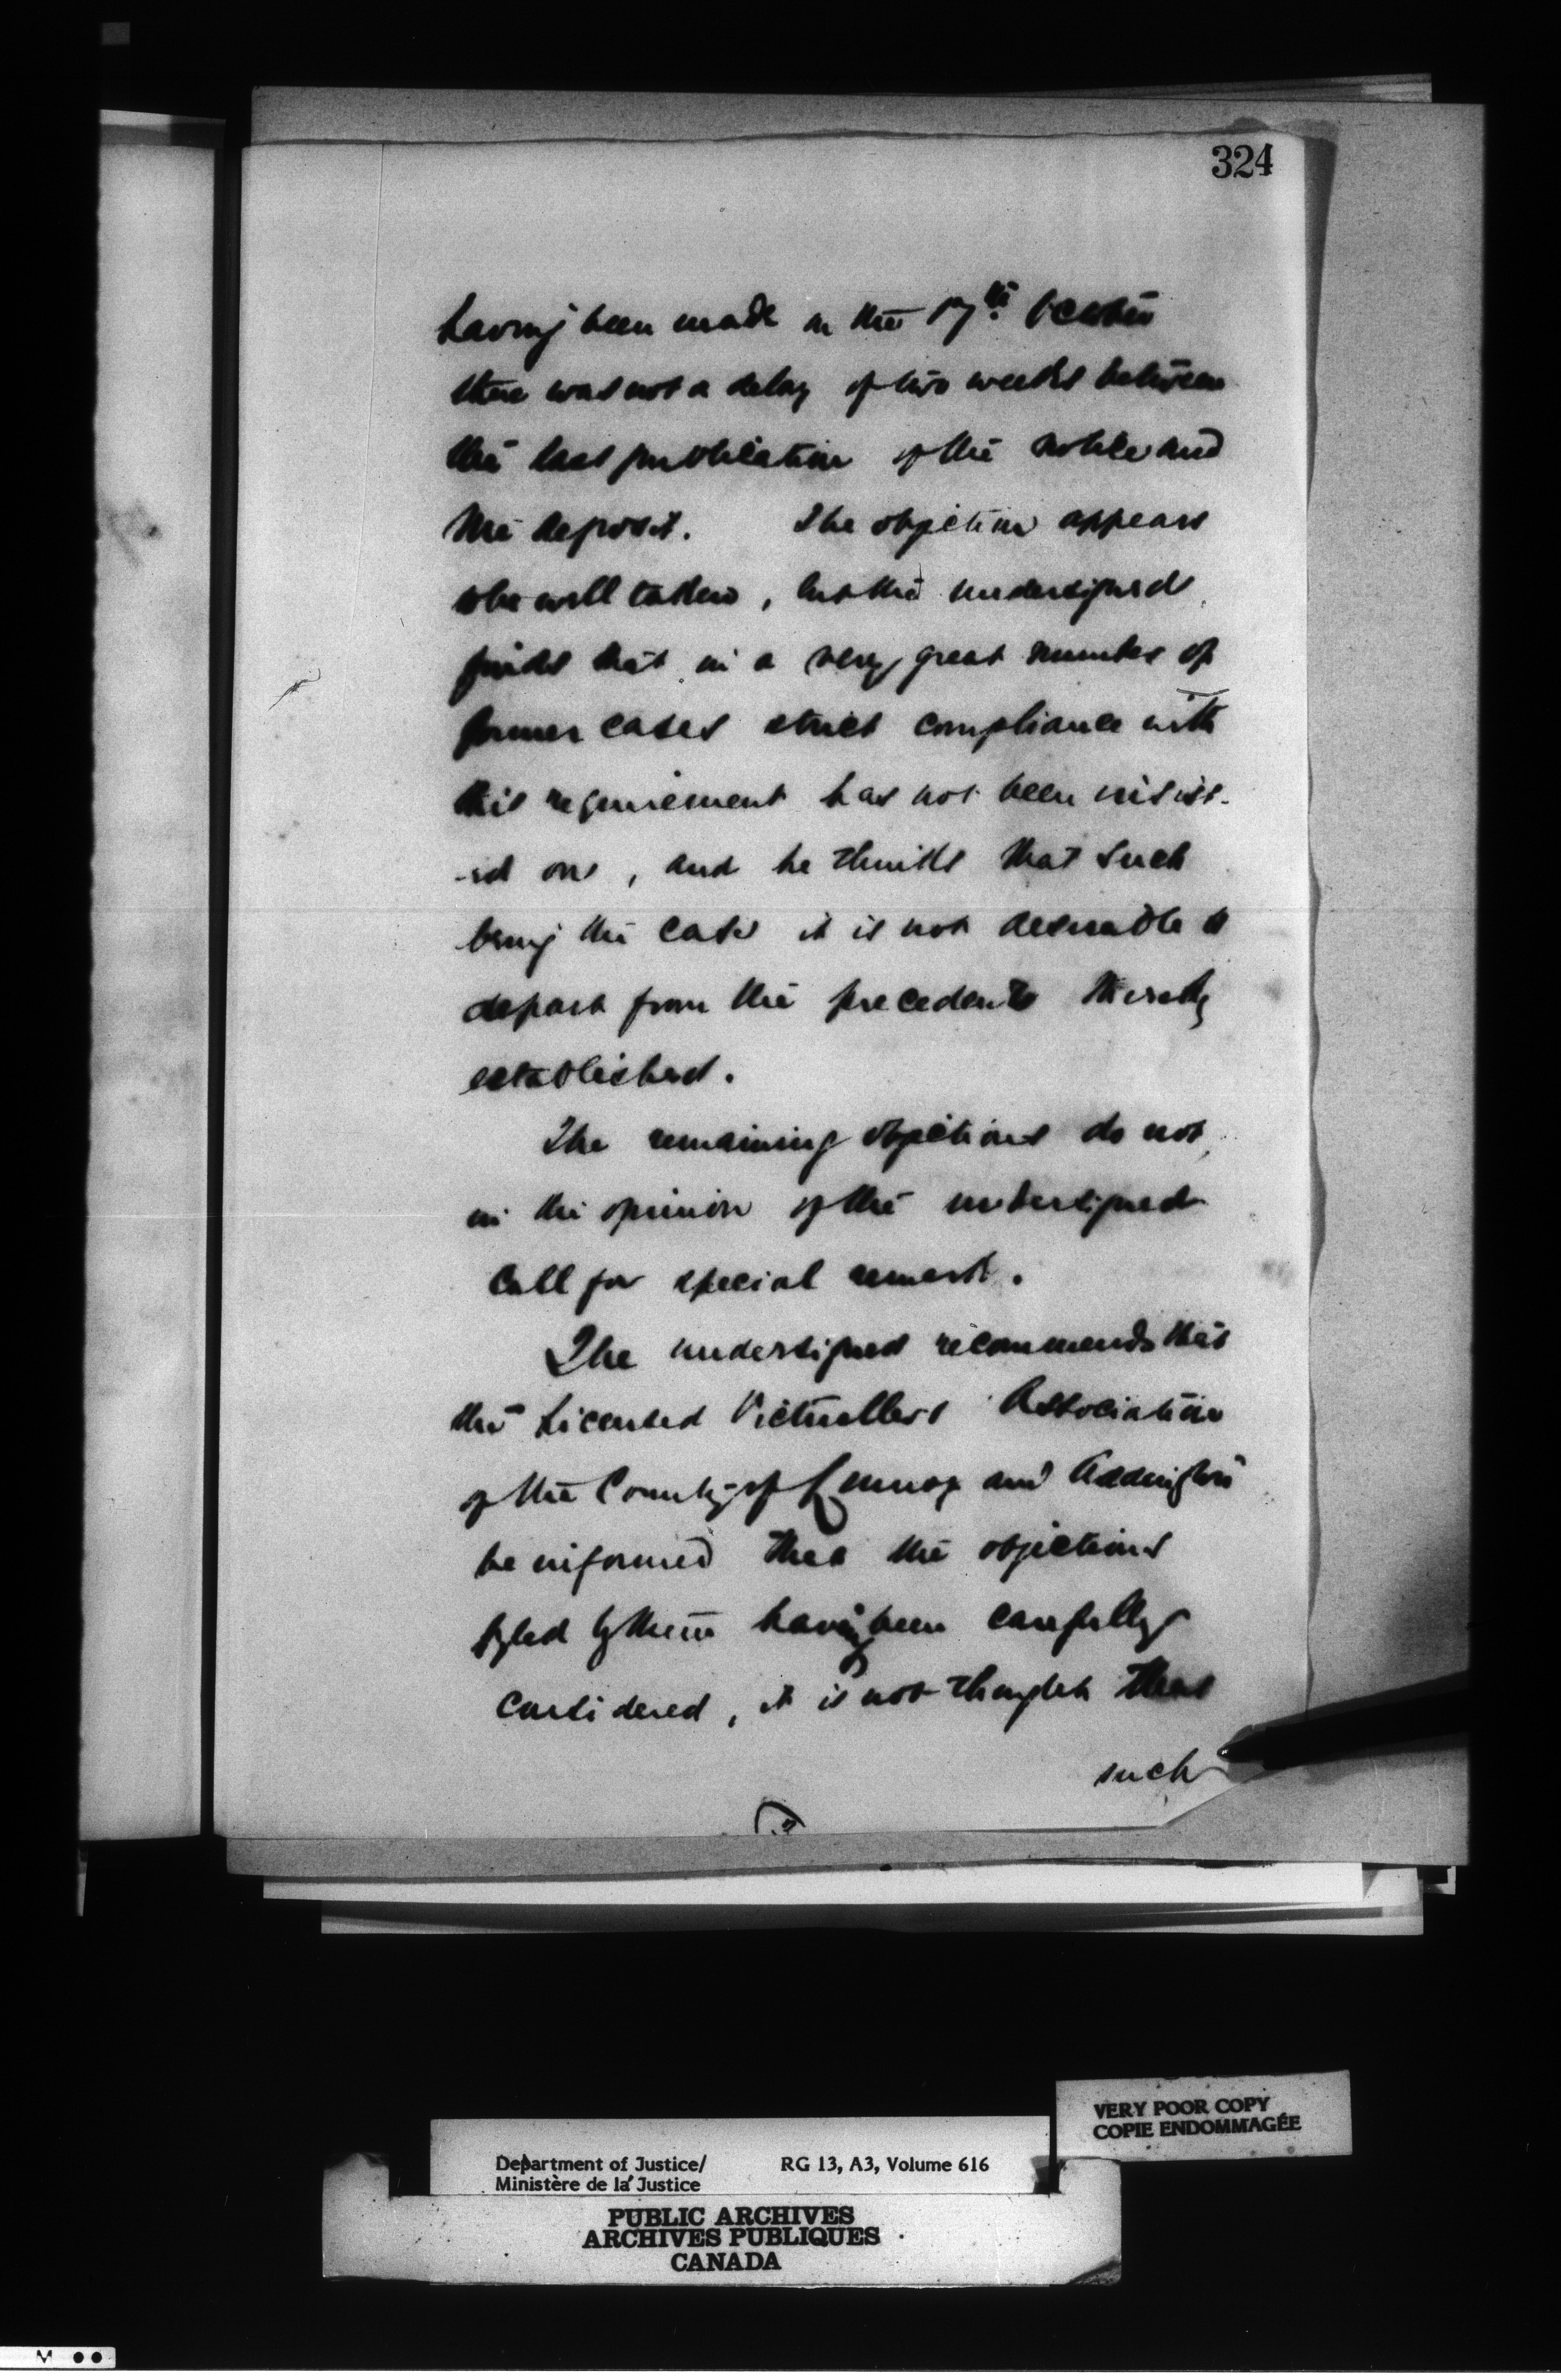 324
having been made on the 17th October
there was not a delay of two weeks between
the last publication of the notice and
the deposit. The objection appears
to be well taken, but the undersigned
finds that in a very great number of
former cases strict compliance with
this requirement has not been insist-
-ed on, and he thinks that such
being the case it is not desirable to
depart from the precedents thereby
established.
The remaining objections do not,
in the opinion of the undersigned
call for special remark.
The undersigned recommends that
the Licensed Victuallers Association
of the County of Lennox and Addington
be informed that the objections
fyled by them having been carefully
considered, it is not thought that
such
VERY POOR COPY
COPIE ENDOMMAGÉE
Department of Justice/ RG 13, A3, Volume 616
Ministère de la Justice
PUBLIC ARCHIVES
ARCHIVES PUBLIQUES
CANADA